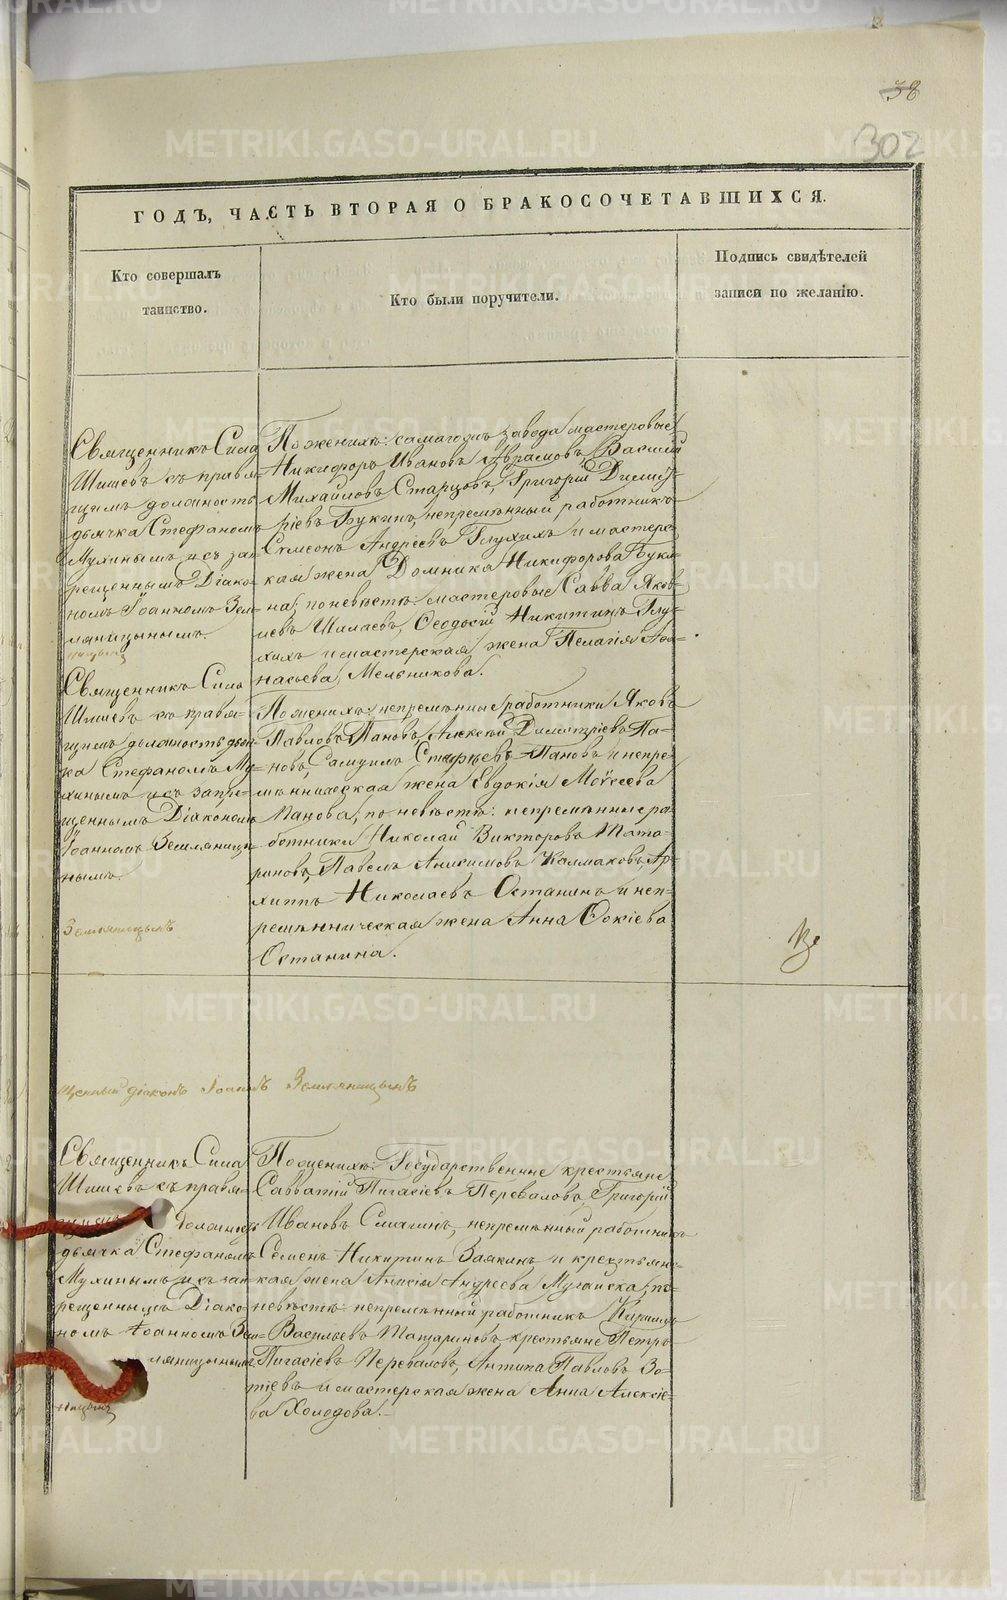 38
302
ГОДЪ, ЧАСТЬ ВТОРАЯ О БРАКОСОЧЕТАВШИХСЯ.
Кто совершалъ
таинство.
Кто были поручители.
Подпись свидѣтелей
записи по желанію.
Священникъ Сила
Шишевъ съ правя-
щимъ должность
дьячка Стефаномъ
Мухинымъ и съ зап-
рещеннымъ Діако-
номъ Іоанномъ Зем-
ляницынымъ.
По женихѣ: самагожъ завода мастеровые
Никифоръ Ивановъ Аврамовъ, Василій
Михайловъ Старцовъ, Григорій Димит-
ріевъ Букинъ, непремѣнный работникъ
Симеонъ Андреевъ Глухихъ и мастерс-
кая жена Домника Никифорова Буки-
на; по невѣстѣ: мастеровые Савва Яков-
левъ Шилаевъ, Ѳеодосій Никитинъ Глу-
хихъ и мастерская жена Пелагія Аѳа-
насьева Мельникова.
Священникъ Сила
Шишевъ съ правя-
щимъ должность дьяч-
ка Стефаномъ Му-
хинымъ и съ запре-
щеннымъ Діакономъ
Іоанномъ Земляници-
нымъ.
Земляницынъ
По женихѣ: непремѣнные работники Яковъ
Павловъ Пановъ, Алексѣй Димитріевъ Па-
новъ, Самуилъ Стафѣевъ Пановъ и непре-
мѣнническая жена Евдокія Моѵсеева
Панова; по невѣстѣ: непремѣнные ра-
ботники Николай Викторовъ Тата-
риновъ, Павелъ Анисимовъ Калмаковъ, Ар-
хиппъ Николаевъ Останинъ и неп-
ремѣнническая жена Анна Ѳокіева
Останина.
щенный діаконъ Іоаннъ Земляницынъ
Священникъ Сила
Шишевъ съ правя-
дьячка Стефаномъ
Мухинымъ и съ зап-
рещеннымъ Діако-
номъ Іоанномъ Зем-
ляницынымъ.
По женихѣ: Государственные крестьяне
Савватій Пигасіевъ Переваловъ, Григорій
Ивановъ Смагинъ, непремѣнный работникъ
Семенъ Никитинъ Заякинъ и крестьянс-
кая жена Анисія Андреева Мугайска; по
невѣстѣ: непремѣнный работникъ Кириллъ
Васильевъ Татариновъ, крестьяне Петръ
Пигасіевъ Переваловъ, Антипа Павловъ Зо-
тіевъ и мастерская жена Анна Алексіе-
ва Холодова.
METRIKI.GASO-URAL.RU